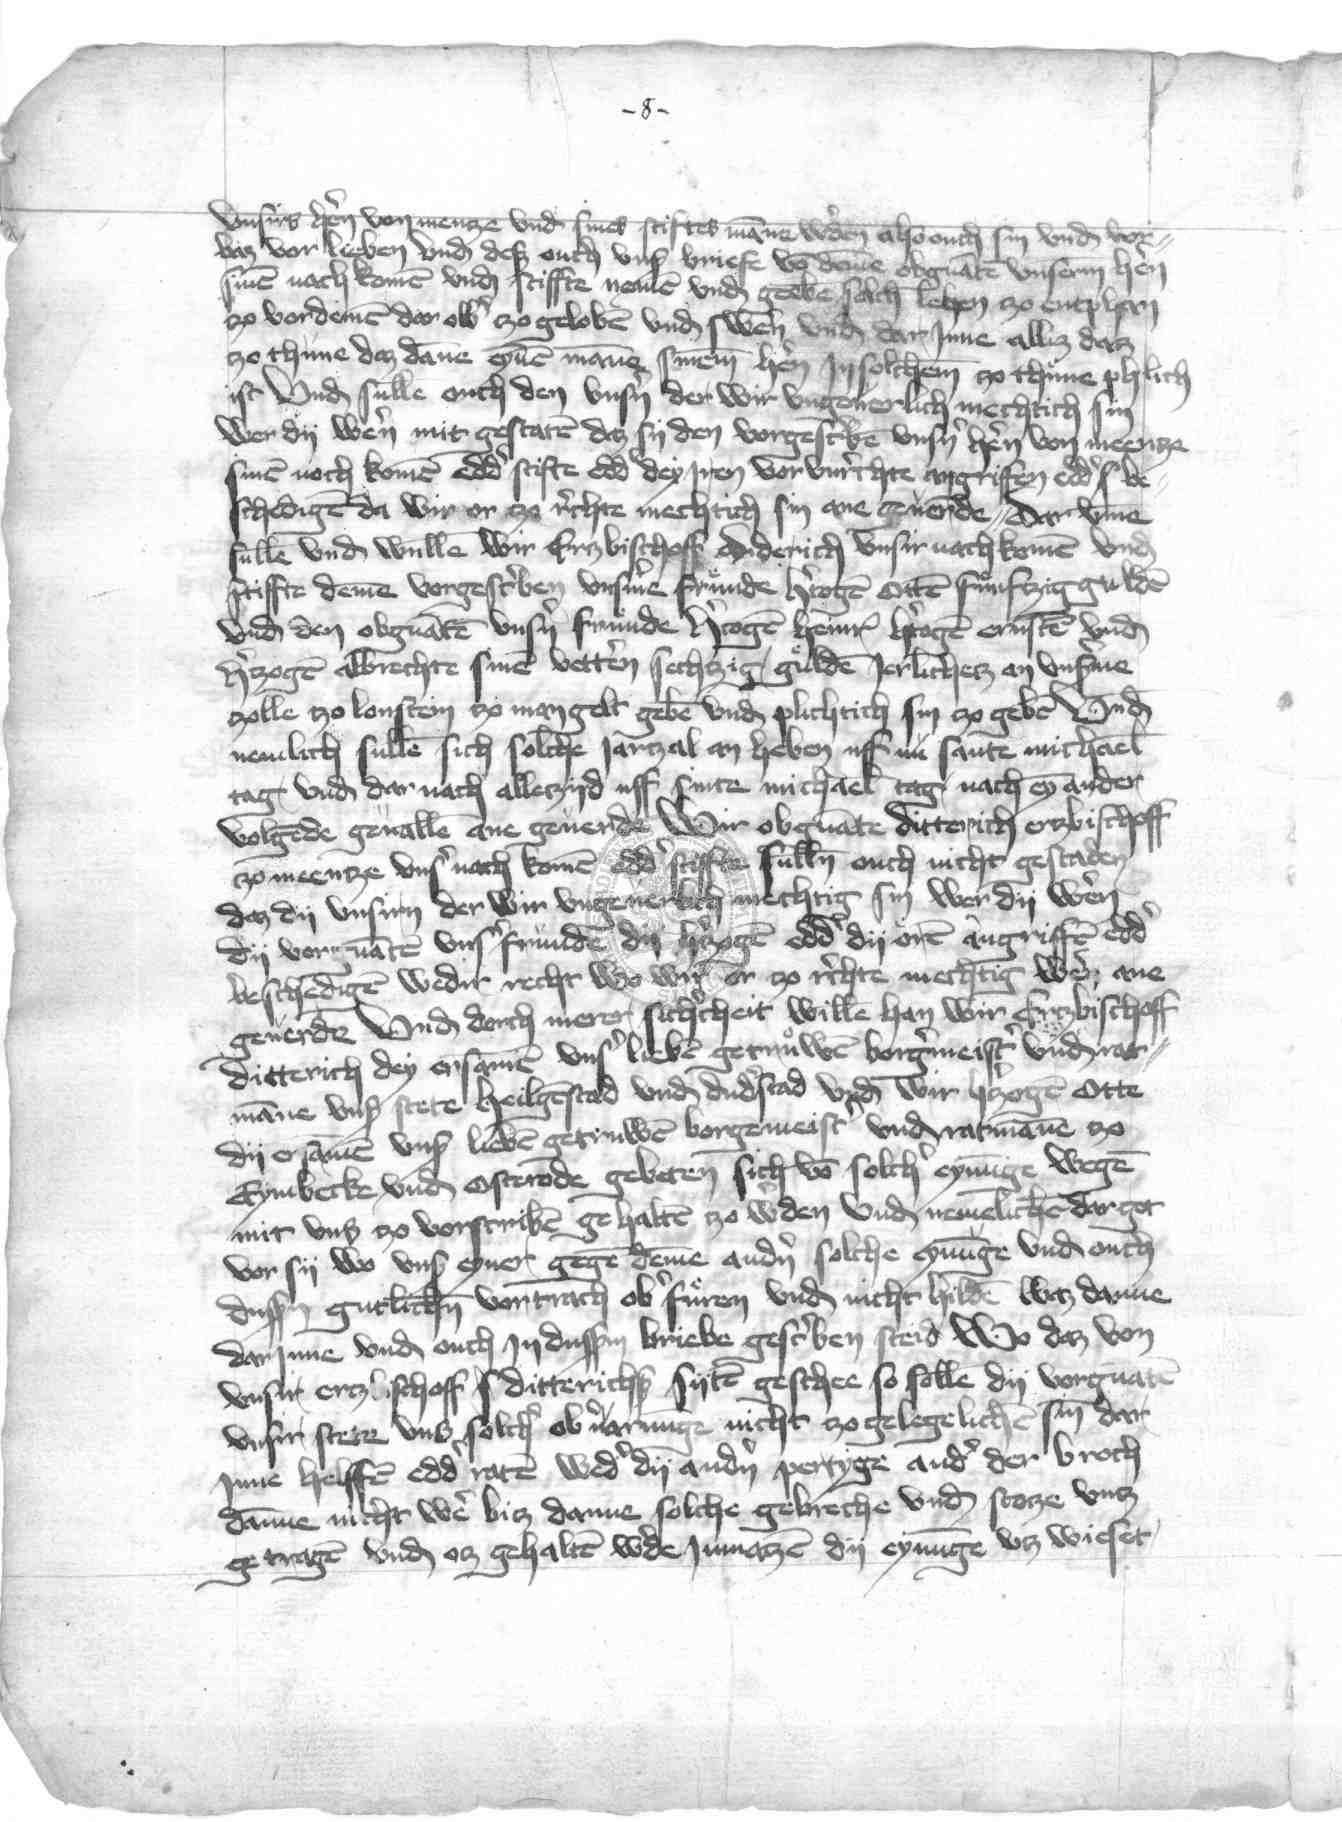 -8-
vnsirs hern von mentze vnd sines stifftes manne werden also ouch sin vnd vor-
baz vor lieben vnd des ouch vnß briefe von deme obgnāte vnserm hern
sinē nach komē vnd stiffte nemē vnd gebē solch leben zo entphan
zo vordenē dar obir zo gelobē vnd swern vnd dar Inne alliz daz
zo thune daz dāne eynē māne sinem hern In solchem zo thune phlich
ist Vnd sulle ouch den vnsern der wir vngeuerlich mechtich sin
wer dij wern mit gestatē daz sij den vorgescrbē vnsern hern von meentze
sinē noch komē edder stifte edder dey Iren vorvnrechte angriffen edder be-
schedigē da wir or zo rechte mechtich sin ane geuerde Dar vme
sullē vnd wullē wir Ertzbisschoff diderich vnsir nachkomē vnd
stiffte deme vorgescrben vnsme frunde hertogē Ottē funfftzig guldē
vnd den obgnātē vnsern frunde hertogē heinr hertogē ernstē vnd
hertzogē albrechte sinē vettern sechtzig guldē Jerlichetz an vnserme
zolle zo lonstein zo mangelt gebē vnd plichtich sin zo gebē Vnd
nemlich sullē sich solche Jartzal an heben uff nu sante michael
tag vnd dar nach alletzijd uff sinte michael tag nach ey ander
volgēde geuallē ane geuerde Wir obgnāte ditterich ertzbisschoff
zo meentze vnser nach komē edder stiffte sullen ouch nicht gestaden
daz dij vnsirn der wir vngeuerlich mechtig sin wer dij wern
dij vorgnātē vnser frundē dij hertzogē edder dij orē angriffē edder
beschedigē wedir recht wo wir or zo rechte mechtig wern ane
geuerde Vnd dorch merer sicherheit willē han wir Ertzbisschoff
ditterich dey ersamē vnser liebē getruwē borgermeister vnd rat-
māne vnß stete heilgēstad vnd duderstad vnd wir hertzogē Otte
dij ersāmē vnß liebē getruwē borgemeister vnd ratmāne zo
Eymbecke vnd Osterode gebeten sich vō solcher eynūnge wegē
mit vns zo vorscribē gehaltē zo werden vnd nemeliche dar got
vor sij wo vns eyner gegē deme andern solche eynūge vnd ouch
dussen gutlichen vortrach ober furen vnd nicht hildē waz danne
dar Inne vnd ouch In dussem briebe gescrben steid Wo daz von
vnsir ertzbisschoff ditterichß sijtē geschee so sollē dij vorgnātē
vnsir stete vns solcher obirfarunge nicht zogelegelichē sin dar
Inne helffē edder ratē wedder dij andern pertyge ander der broch
danne nicht wer biz danne solche gebreche vnd stoze vnß
getragē vnd oz gehaltē werde Inmatzē dij eynūge vz wieset